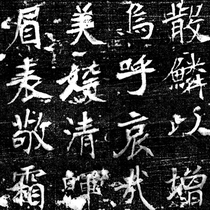 散鱗以增
烏呼哀哉
美清
眉表敬霜